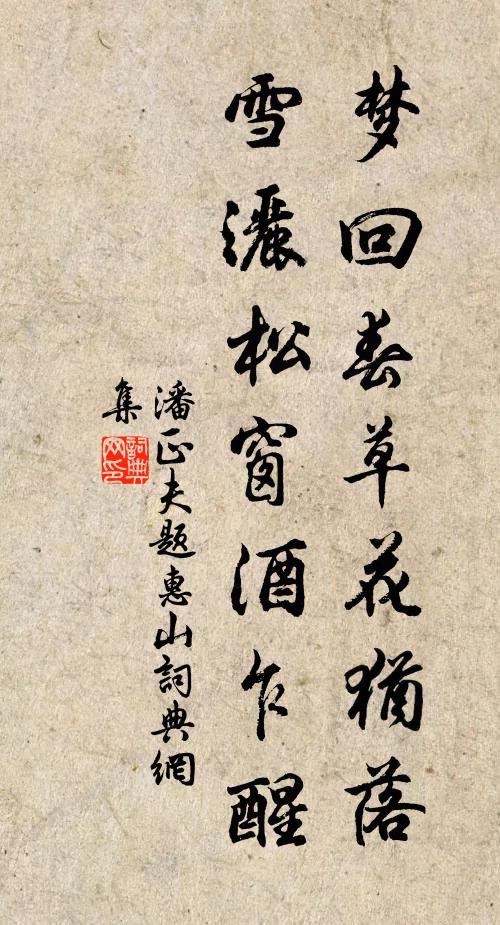 梦回春草花犹落
雪灑松窗酒乍醒
潘正夫题惠山詞典網
集
詞典網印